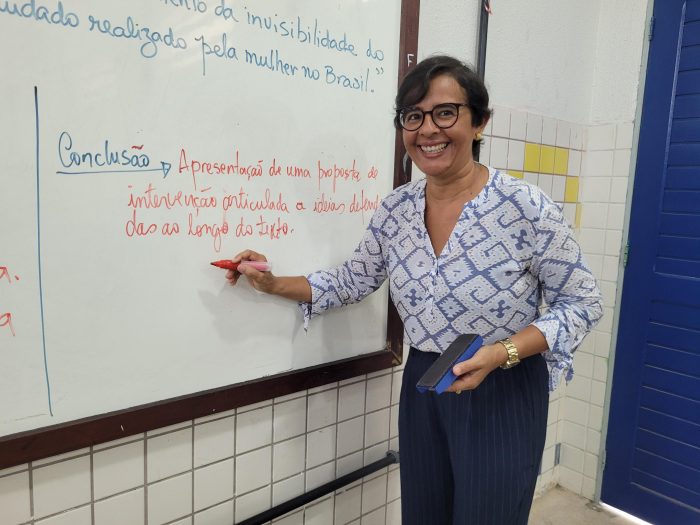 mento da invisibilidade do
cuidado realizado pela mulher no Brasil."
Conclusão → Apresentação de uma proposta de
intervenção articulada a ideias defen
das ao longo do texto.
a.
a